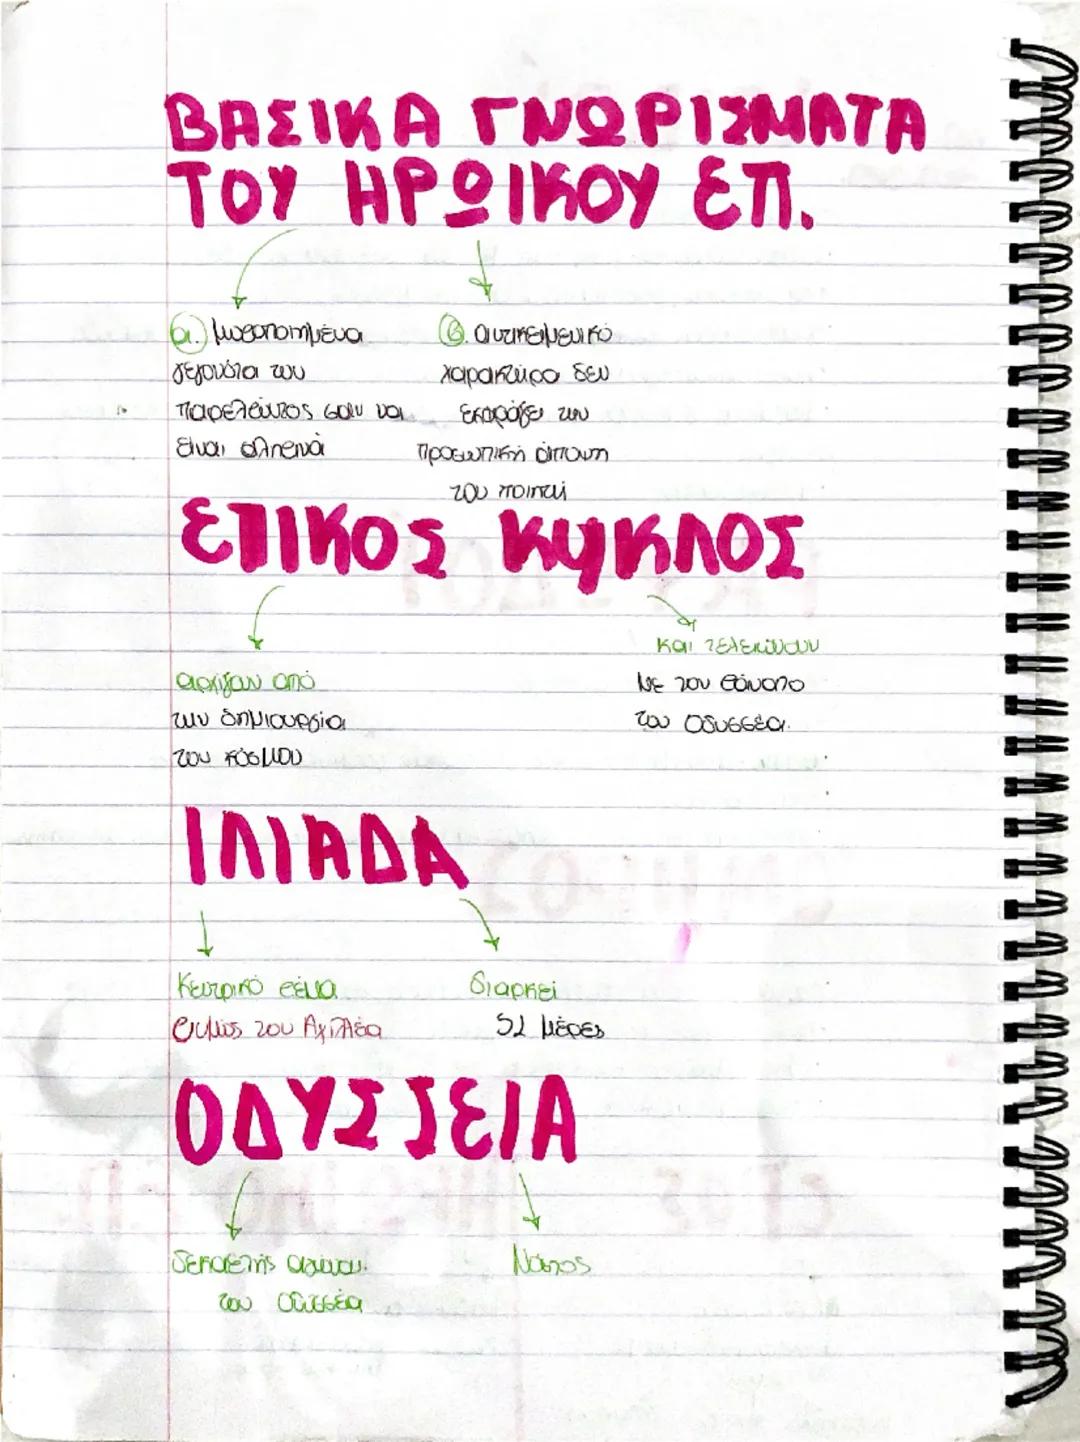 ΒΑΣΙΚΑ ΓΝΩΡΙΣΜΑΤΑ
ΤΟΥ ΗΡΩΙΚΟΥ ΕΠ.
α. μυθοποιημένα
γεγονότα του
παρελθόντος σαν να
είναι αληθινά
β. αντικειμενικό
χαρακτήρα δεν
εκφράζει την
προσωπική άποψη
του ποιητή
ΕΠΙΚΟΣ ΚΥΚΛΟΣ
αρχίζαν από
την δημιουργία
του κόσμου
και τελειώνουν
με τον θάνατο
του Οδυσσέα.
ΙΛΙΑΔΑ
Κεντρικό θέμα
θυμός του Αχιλλέα
διαρκεί
52 μέρες
ΟΔΥΣΣΕΙΑ
δεκαετής
του Οδυσσέα
Νόστος